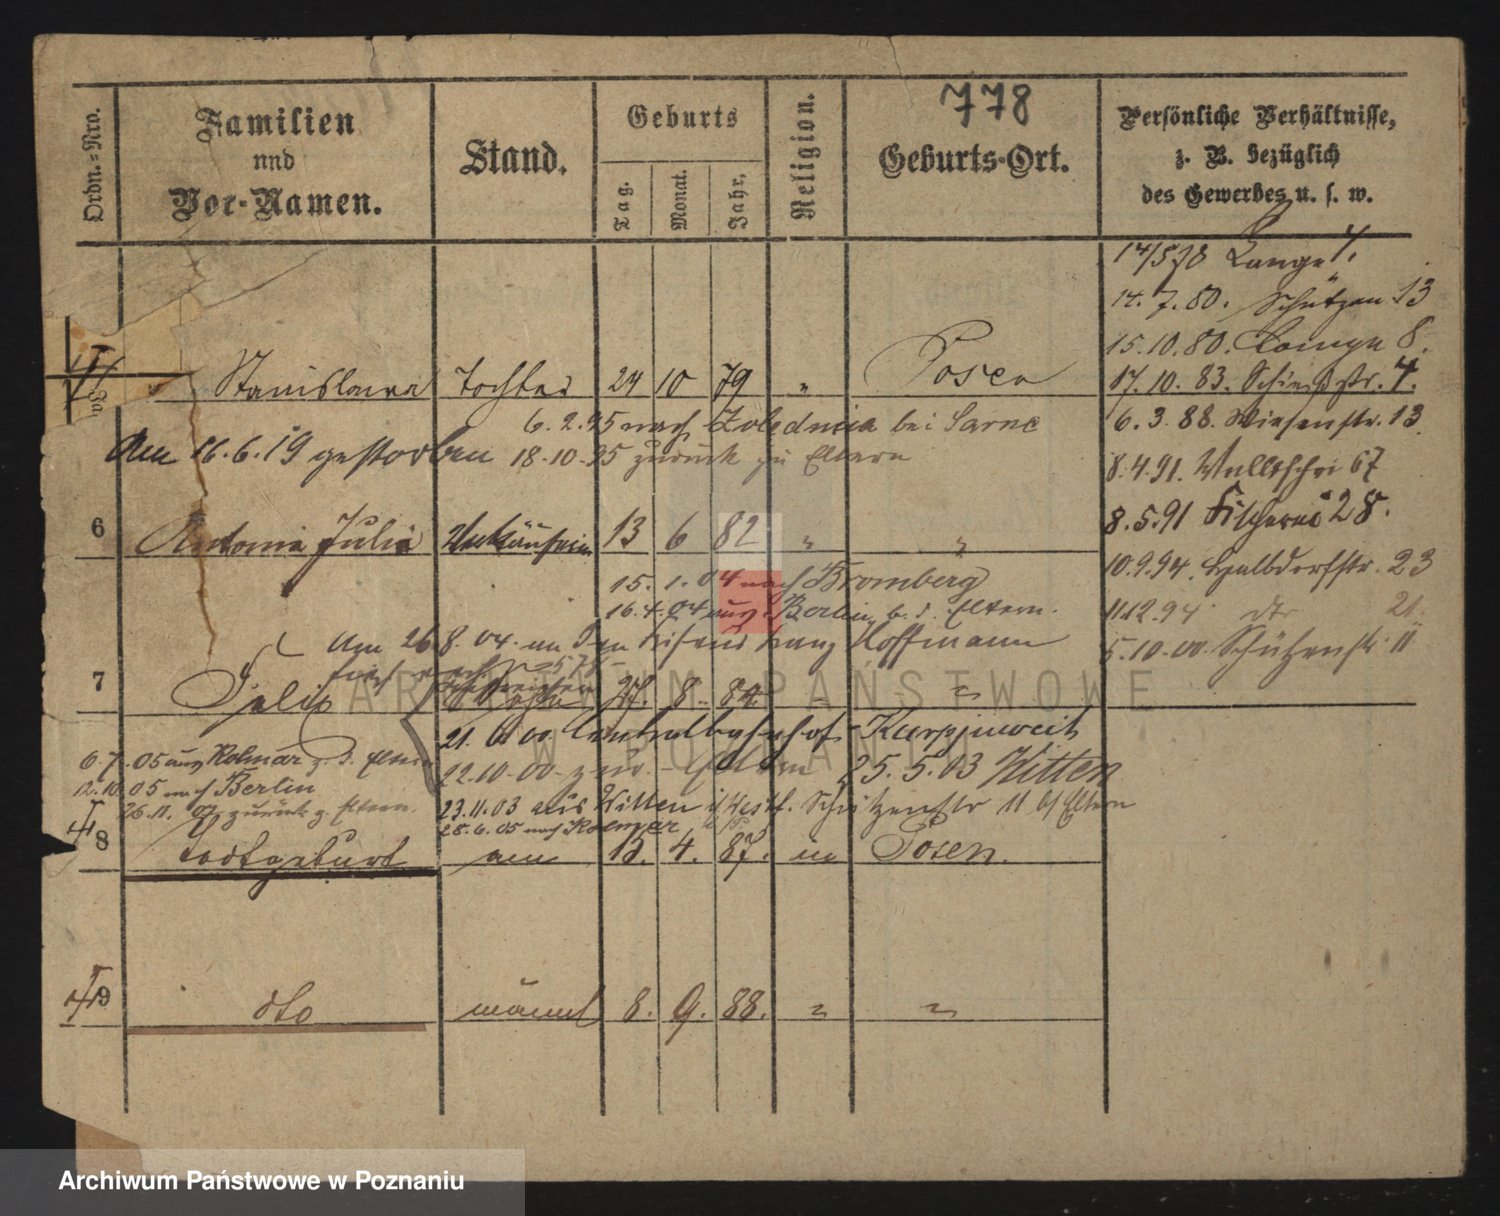 778
Ordn.=Nro.
Familien
und
Vor=Namen.
Stand.
Geburts
Tag.
Monat.
Jahr.
Religion.
Geburts=Ort.
Persönliche Verhältnisse,
z. B. bezüglich
des Gewerbes u. s. w.
14/5 78 Lange
14. 7. 80. Schützen 13
15. 10. 80. Lange 8.
17. 10. 83. Schießstr. 4.
Stanislawa Tochter 24 10 79 " Posen
6. 2. 95 nach Zolednica bei Sarne
6. 3. 88. Wiesenstr. 13
Am 16.6.19 gestorben 18.10.95 zurück zu Eltern
8. 4. 91. Wallischei 67
8. 5. 91 Fischerei 28.
6 Antonia Julia Verkäuferin 13 6 82 " "
10. 9. 94. Halbdorfstr. 23
15. 1. 04 nach Bromberg
16. 4. 04 aus Berlin b. d. Eltern.
11 12. 94 dto 21.
Am 26 8. 04. an den Franz Hoffmann
5. 10. 00. Schützenstr. 11
7 Felix 27. 8. 84 "
21. 6 00 Centralbahnhof Karpinweit
6. 7. 05 aus Kolmar z. d. Eltern
22. 10. 00. zur Eltern 25. 5. 03 Witten
12. 10. 05 nach Berlin
26. 11. 07 zurück z. Eltern.
23. 11. 03 aus Witten i/Westf. Schützenstr 11 b/ Eltern
28. 6. 05 nach Kolmar i/P.
8 Todtgeburt am 13. 4. 87. in Posen.
9 dto männl 8. 9. 88. " "
ARCHIWUM PAŃSTWOWE
W POZNANIU
Archiwum Państwowe w Poznaniu